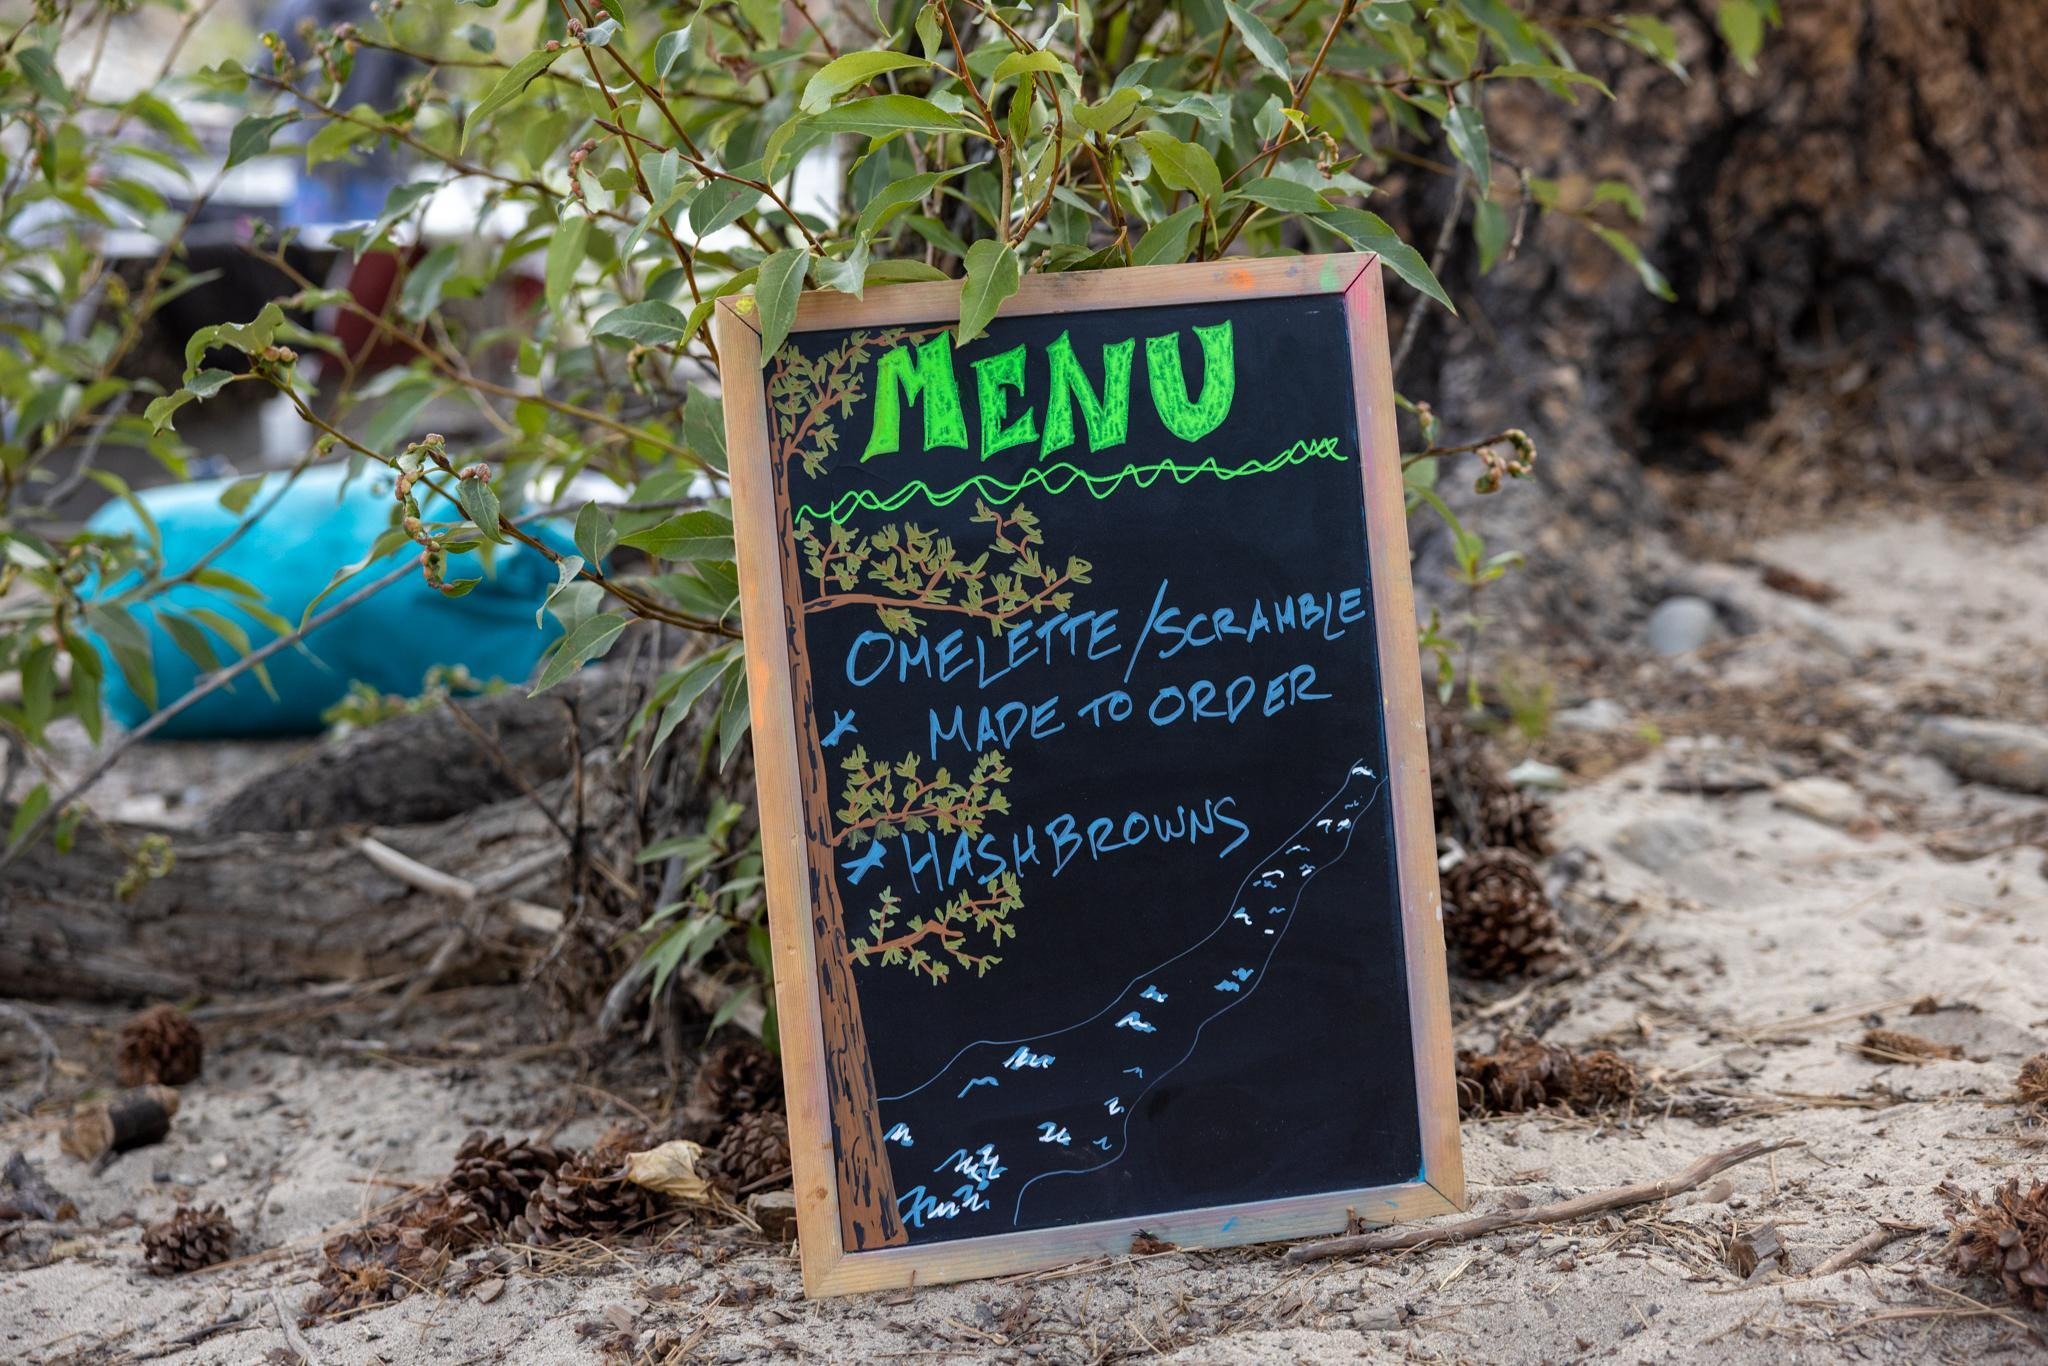 MENU
OMELETTE/SCRAMBLE
* MADE TO ORDER
* HASHBROWNS